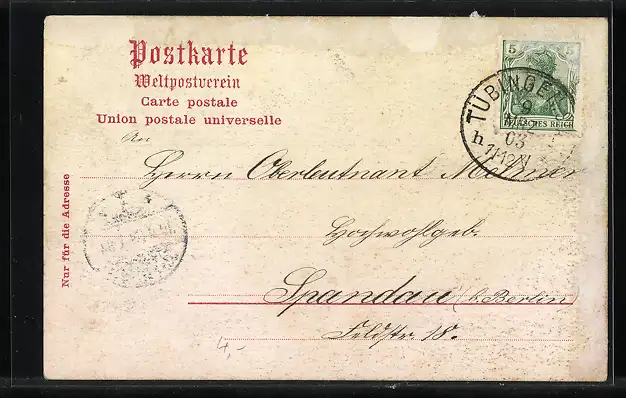 Postkarte
Weltpostverein
Carte postale
Union postale universelle
5 5
DEUTSCHES REICH
TÜBINGEN
9
03
h 11-12 N
An
Herrn Oberleutnant
Hochwohlgeb.
Spandau (b. Berlin)
Feldstr. 18.
4,-
Nur für die Adresse